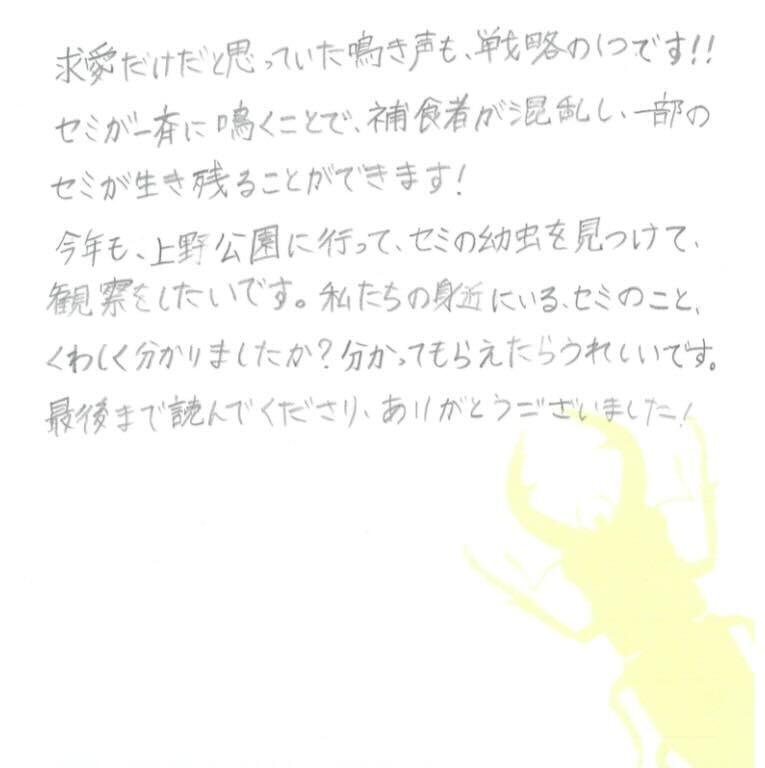 求愛だけだと思っていた鳴き声も、戦略の1つです!!
セミが一斉に鳴くことで、補食者が混乱し、一部の
セミが生き残ることができます!
今年も、上野公園に行って、セミの幼虫を見つけて、
観察をしたいです。私たちの身近にいる、セミのこと、
くわしく分かりましたか?分かってもらえたらうれしいです。
最後まで読んでくださり、ありがとうございました!